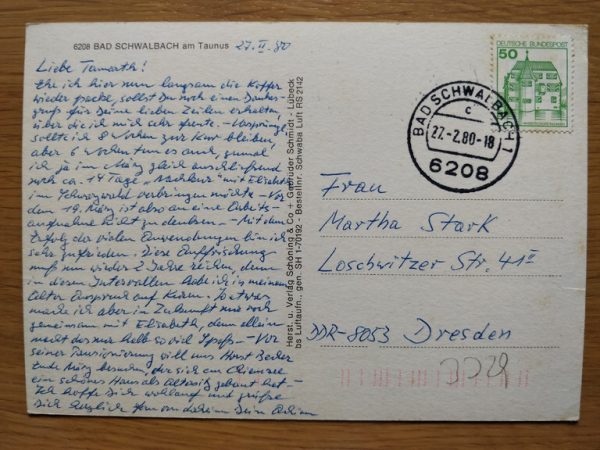 6208 BAD SCHWALBACH am Taunus 27.II.80
Liebe Tamerth!
Ehe ich hier nun langsam die Koffer
wieder packe, sollst Du noch einen Dankes-
gruß für Deine lieben Zeilen erhalten,
über die ich mich sehr freute. - Ursprüngl.
sollte ich 8 Wochen zur Kur bleiben,
aber 6 Wochen tun es auch, zumal
ich ja im März gleich anschließend
noch ca. 14 Tage „Nachkur" mit Elisabeth
im Schwarzwald verbringen möchte - Vor
dem 19. März ist also an eine Arbeits-
aufnahme nicht zu denken. - Mit dem
Erfolg der vielen Anwendungen bin ich
sehr zufrieden. Diese Auffrischung
muß nun wieder 2 Jahre reichen, denn
in diesen Intervallen habe ich in meinem
Alter Anspruch auf Kuren. So etwas
mache ich aber in Zukunft nur noch
gemeinsam mit Elisabeth, denn allein
macht das nur halb so viel Spaß. - Vor
seiner Pensionierung will uns Horst
Ende März besuchen, der sich am Chiemsee
ein schönes Haus als Altersitz gebaut hat -
Ich hoffe Dich wohlauf und grüße
Dich herzlich von daheim Dein
Herst. u. Verlag Schöning & Co + Gebrüder Schmidt - Lübeck
bs Luftaufn., gen. SH 1-70192 - Bestellnr. Schwaba Luft RS 2142
50
DEUTSCHE BUNDESPOST
BAD SCHWALBACH 1
c
27.-2.80-18
6208
Frau
Martha Stark
Loschwitzer Str. 41
DDR-8053 Dresden